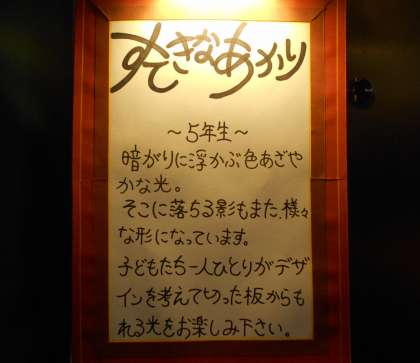 すてきなあかり
～5年生～
暗がりに浮かぶ色あざや
かな光。
そこに落ちる影もまた、様々
な形になっています。
子どもたち一人ひとりがデザ
インを考えて切った板からも
れる光をお楽しみ下さい。